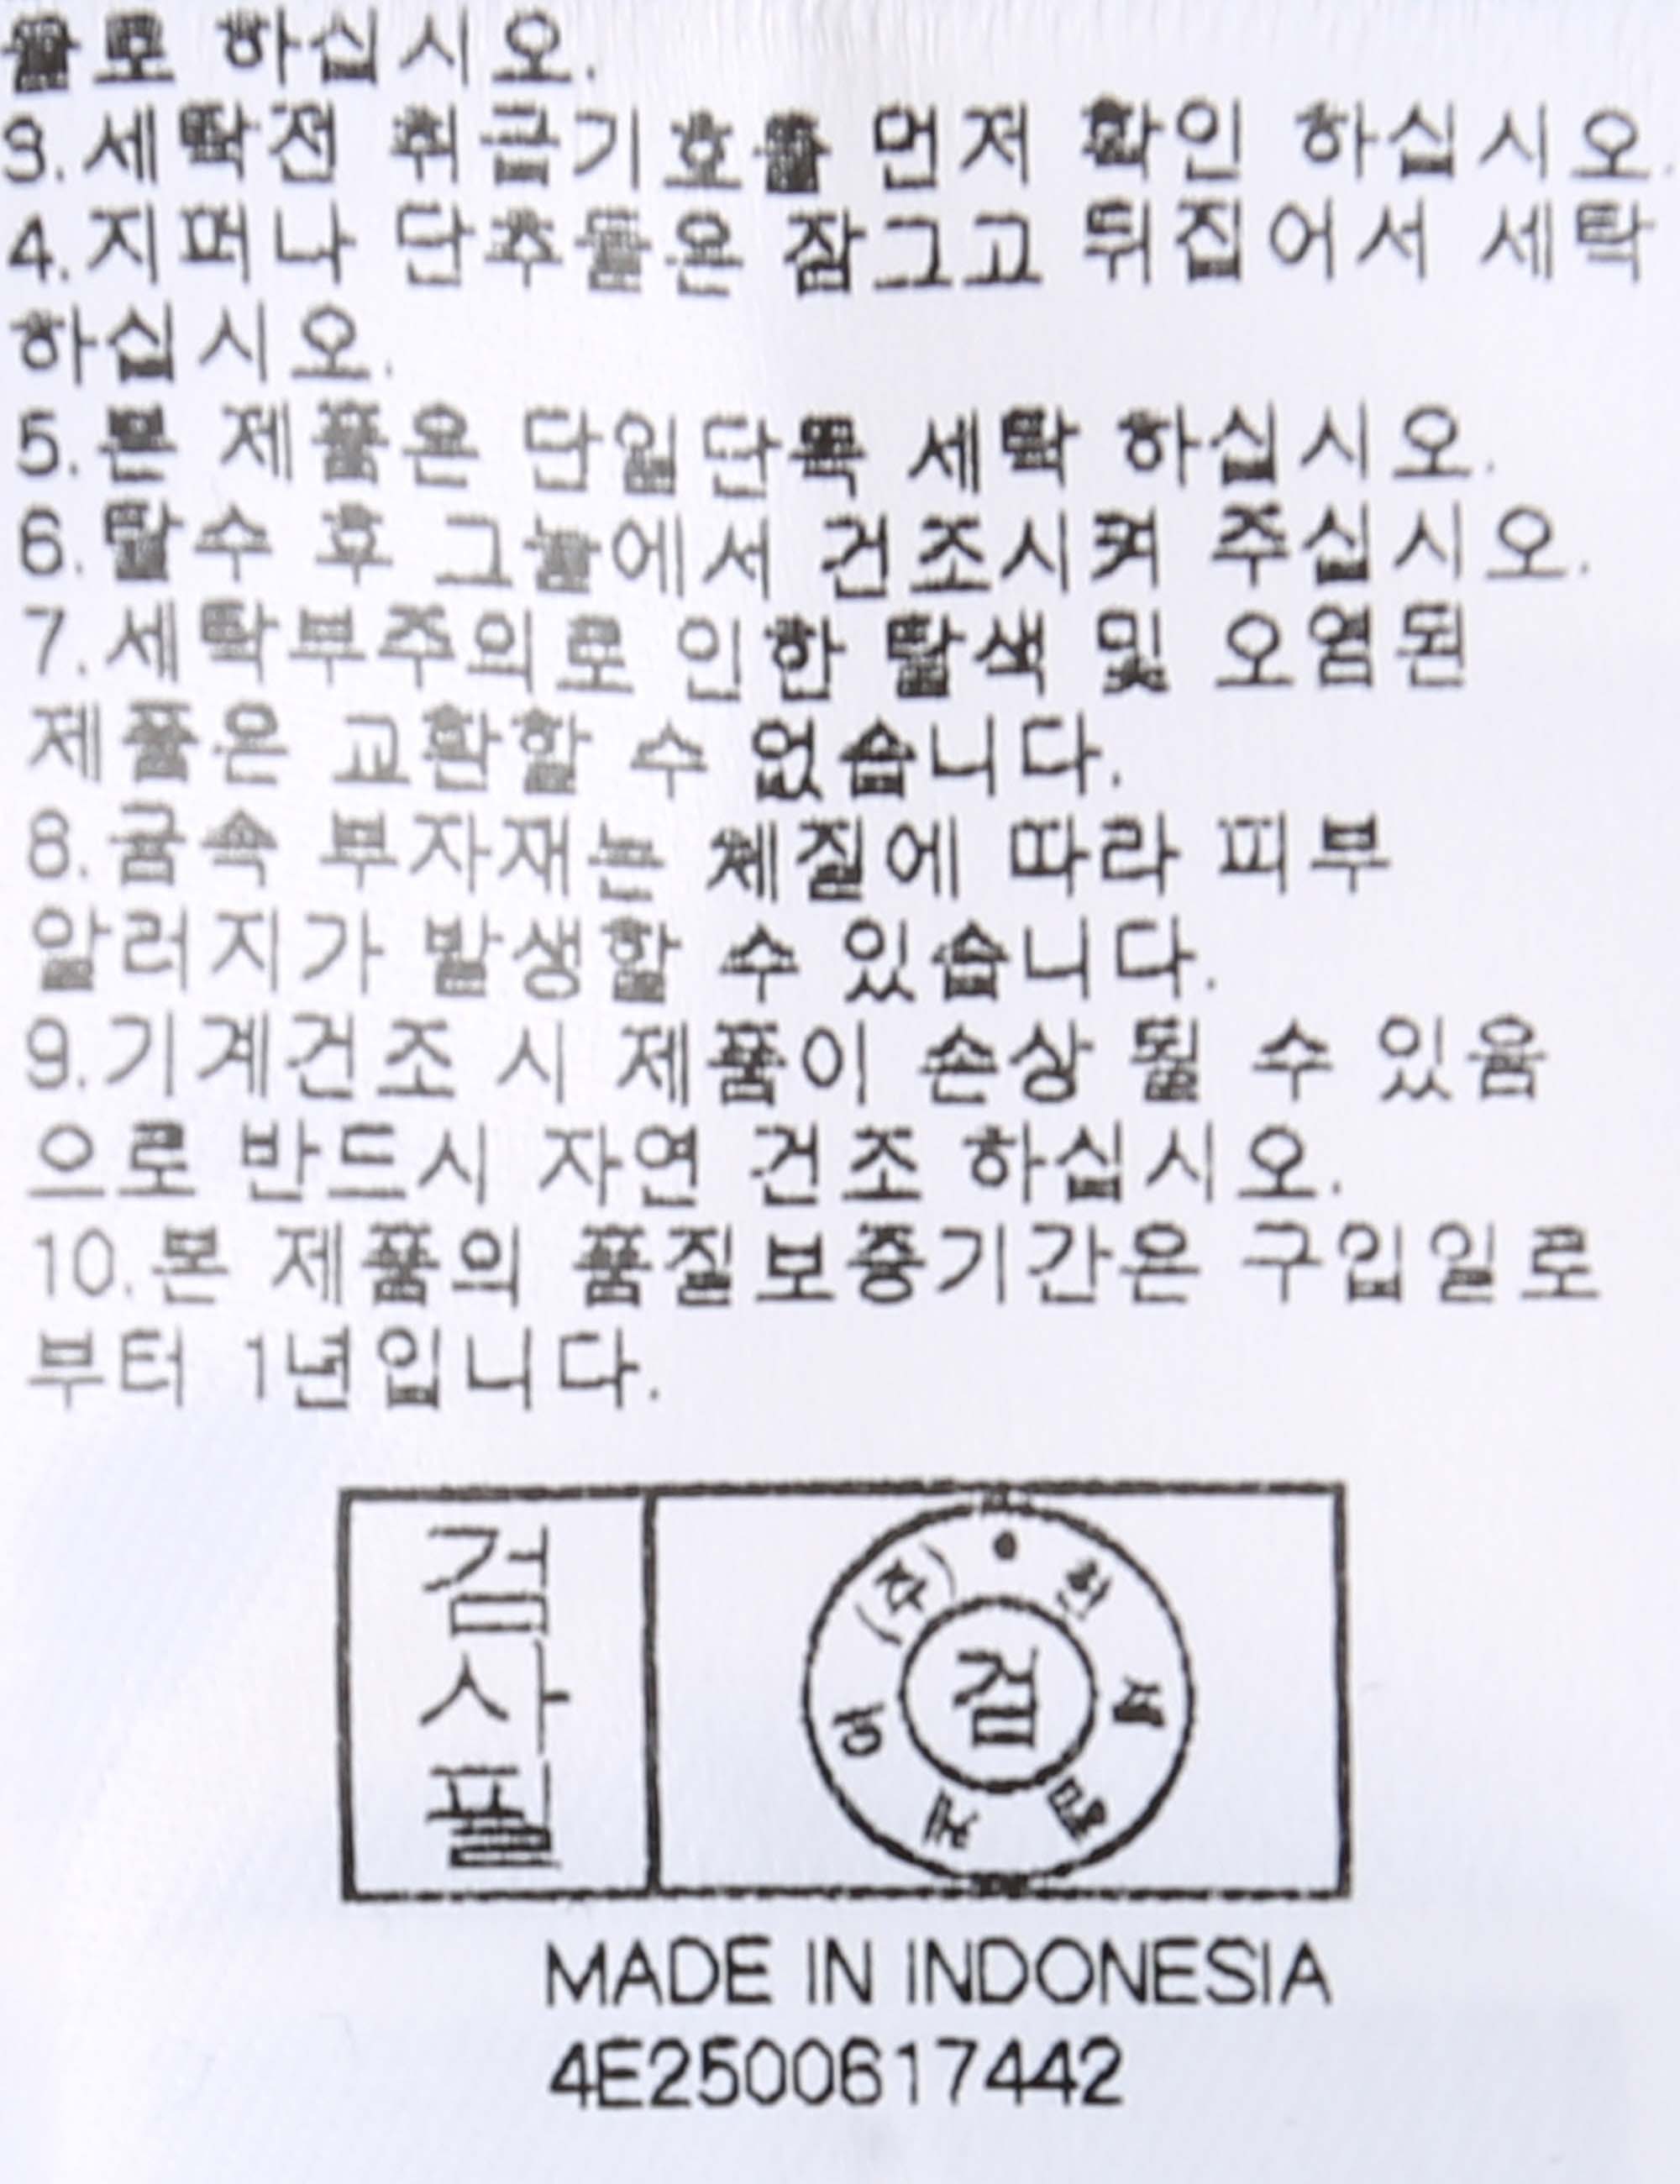 물로 하십시오.
3.세탁전 취급기호를 먼저 확인 하십시오.
4.지퍼나 단추들은 잠그고 뒤집어서 세탁
하십시오.
5.본 제품은 단일단독 세탁 하십시오.
6.탈수 후 그늘에서 건조시켜 주십시오.
7.세탁부주의로 인한 탈색 및 오염된
제품은 교환할 수 없습니다.
8.금속 부자재는 체질에 따라 피부
알러지가 발생할 수 있습니다.
9.기계건조 시 제품이 손상 될 수 있음
으로 반드시 자연 건조 하십시오.
10.본 제품의 품질보증기간은 구입일로
부터 1년입니다.
검사필
(주)
한세엠케이
검
MADE IN INDONESIA
4E2500617442